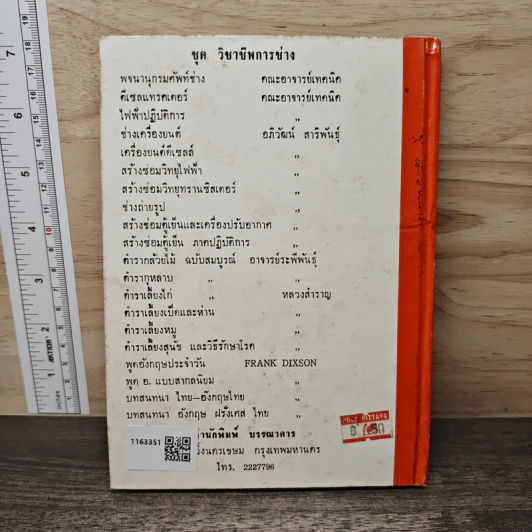 ชุด วิชาชีพการช่าง
พจนานุกรมศัพท์ช่าง คณะอาจารย์เทคนิค
ดีเซลแทรคเตอร์ คณะอาจารย์เทคนิค
ไฟฟ้าปฏิบัติการ ,,
ช่างเครื่องยนต์ อภิวัฒน์ สาริพันธุ์
เครื่องยนต์ดีเซลล์ ,,
สร้างซ่อมวิทยุไฟฟ้า ,,
สร้างซ่อมวิทยุทรานซิสเตอร์ ,,
ช่างถ่ายรูป ,,
สร้างซ่อมตู้เย็นและเครื่องปรับอากาศ ,,
สร้างซ่อมตู้เย็น ภาคปฏิบัติการ ,,
ตำรากล้วยไม้ ฉบับสมบูรณ์ อาจารย์ระพีพันธุ์
ตำรากุหลาบ ,, ,,
ตำราเลี้ยงไก่ ,, หลวงสำราญ
ตำราเลี้ยงเป็ดและห่าน ,,
ตำราเลี้ยงหมู ,,
ตำราเลี้ยงสุนัข และวิธีรักษาโรค ,,
พูดอังกฤษประจำวัน FRANK DIXSON
พูด อ. แบบสากลนิยม ,,
บทสนทนา ไทย–อังกฤษไทย ,,
บทสนทนา อังกฤษ ฝรั่งเศส ไทย ,,
บรรณาคาร
กรุงเทพมหานคร
โทร. 2227796
1163351